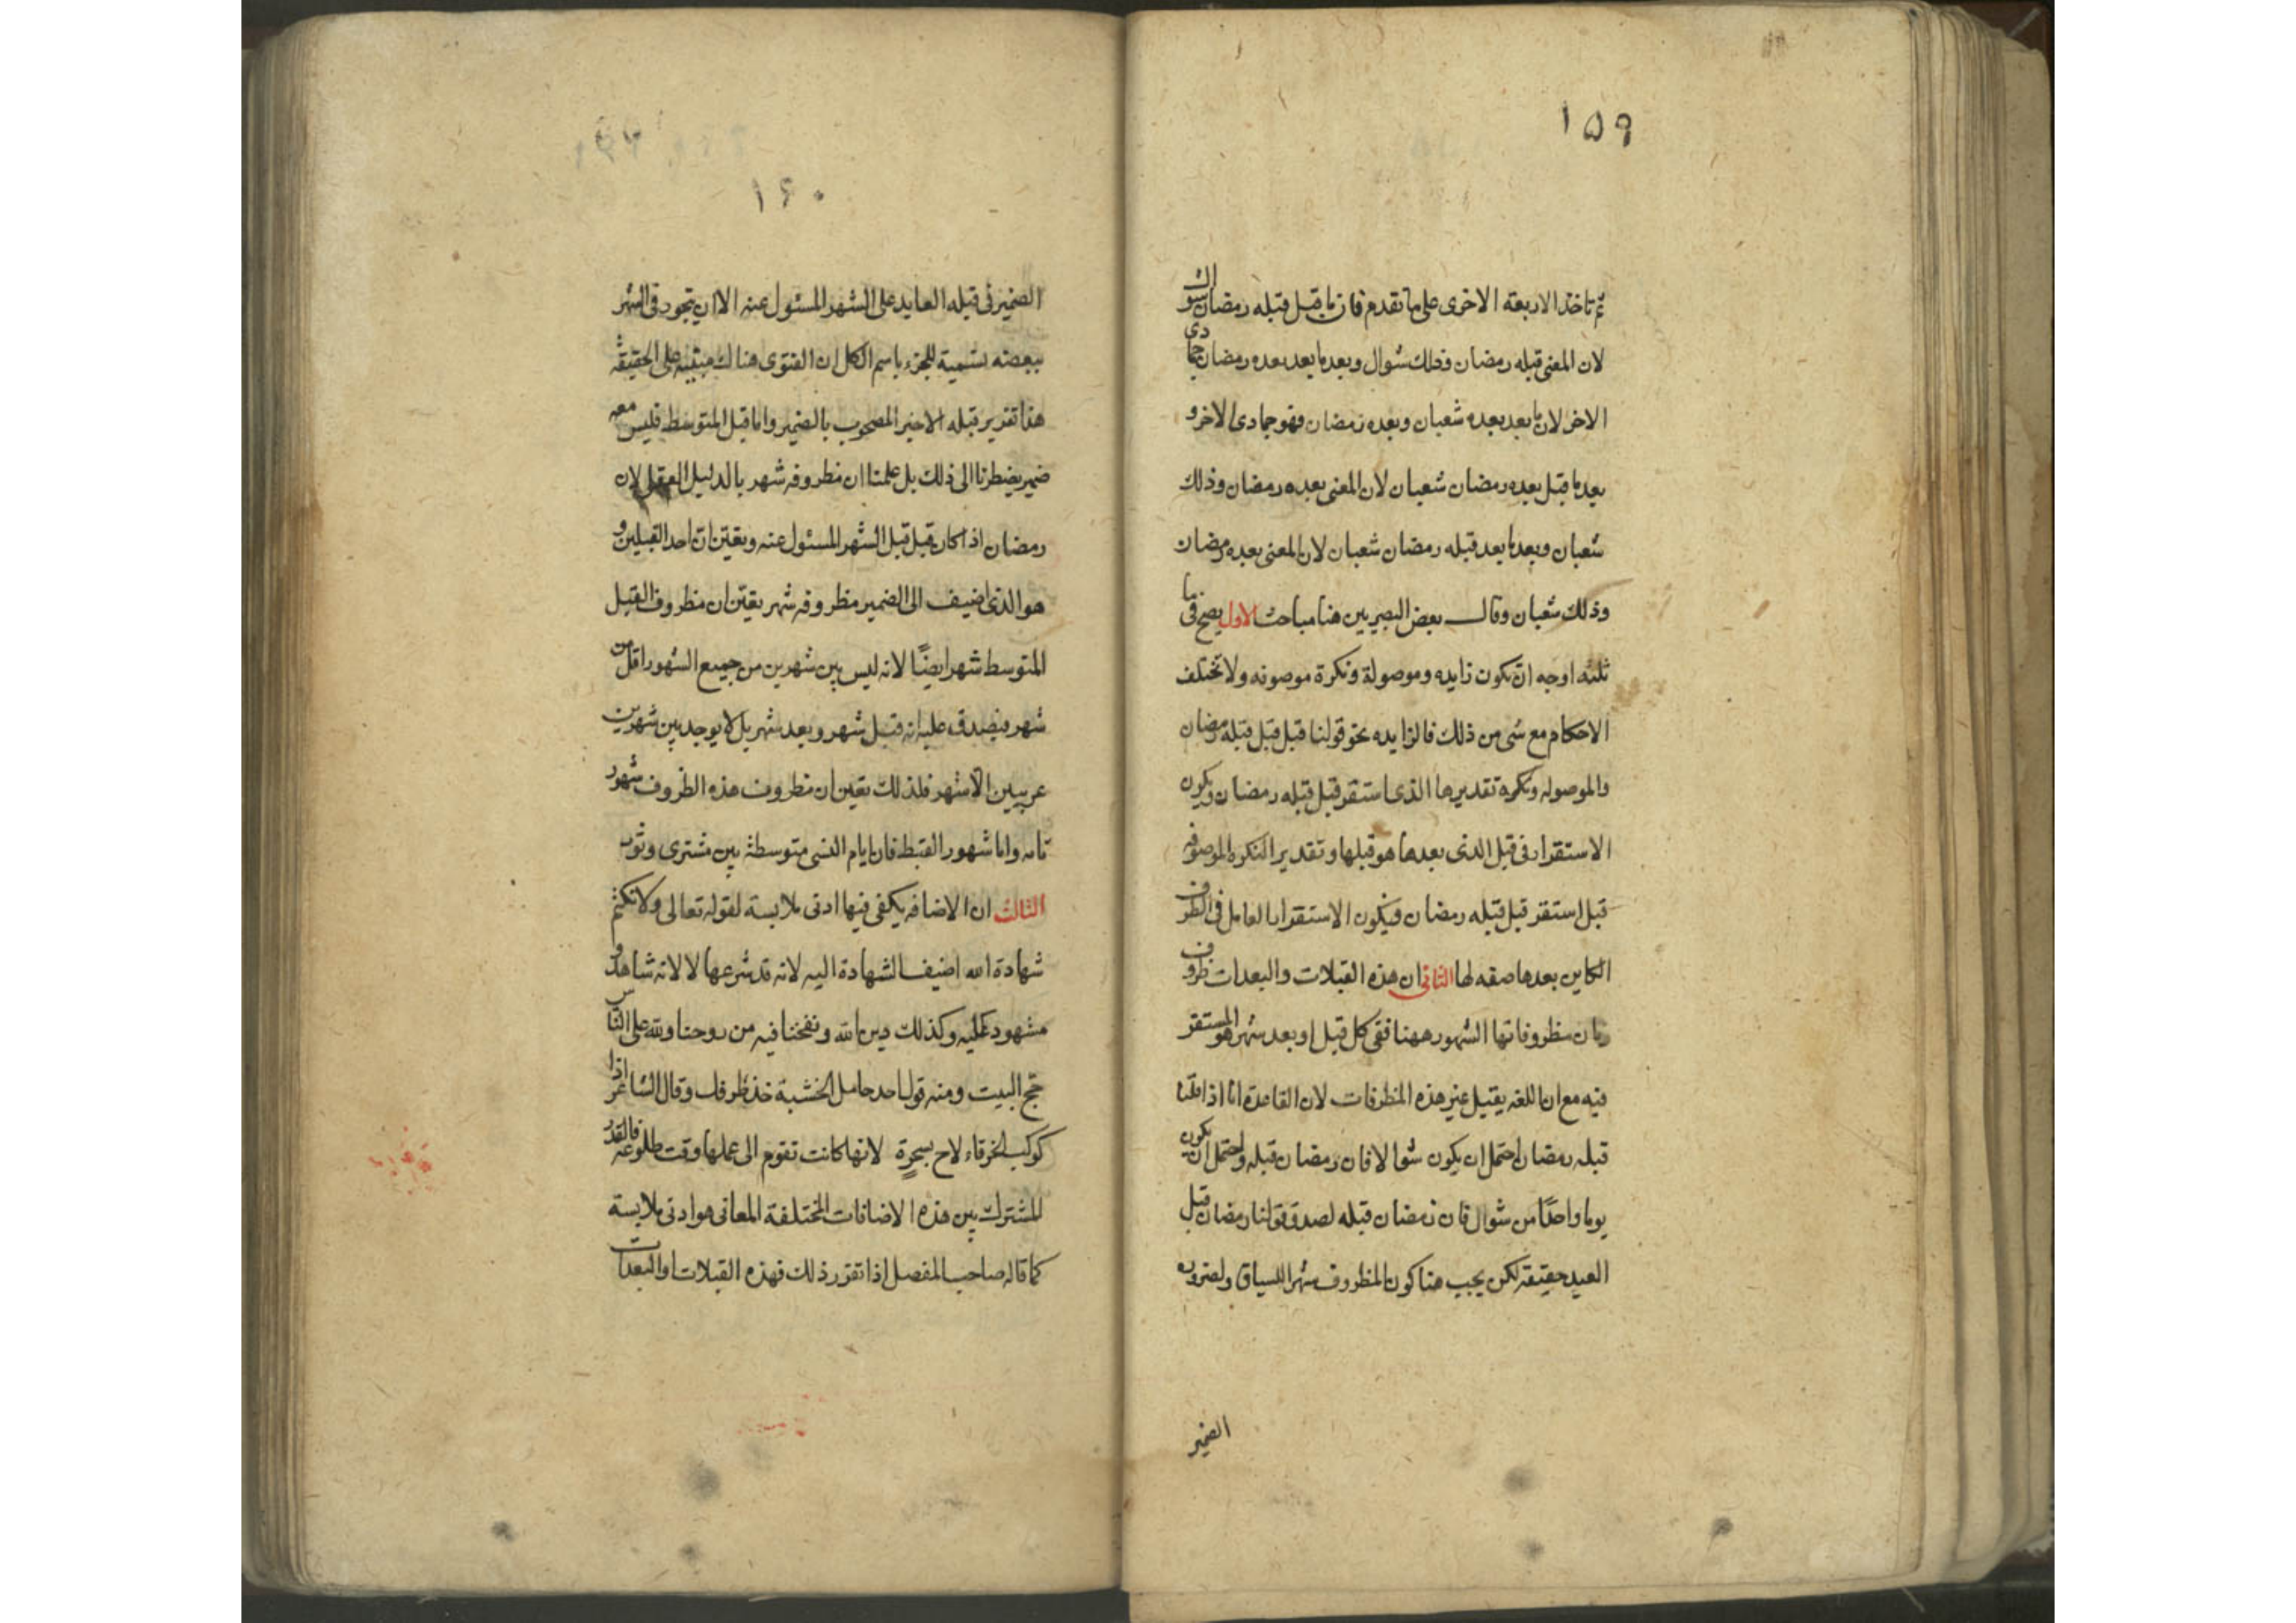 ١٥٩
ثم تاخذ الاربعة الاخرى على ما تقدم فان ما قبل قبله رمضان شوال
لان المعنى قبله رمضان وذلك شوال وبعد ما بعد بعده رمضان جمادى
الاخر لان ما بعد بعده شعبان وبعده رمضان فهو جمادى الاخر و
بعد ما قبل بعده رمضان شعبان لان المعنى بعده رمضان وذلك
شعبان وبعد ما بعد قبله رمضان شعبان لان المعنى بعده رمضان
وذلك شعبان وقال بعض البصريين هنا مباحث الاول يصح في ما
ثلثه اوجه ان تكون زايده وموصولة ونكرة موصوفه ولا تختلف
الاحكام مع شى من ذلك فالزايده نحو قولنا قبل قبل قبله رمضان
والموصوله ونكره تقديرها الذى استقر قبل قبله رمضان ويكون
الاستقرار فى قبل الذى بعدها هو قبلها وتقدير النكره الموصوفه
قبل استقر قبل قبله رمضان فيكون الاستقرار العامل فى الظرف
الكاين بعدها صفه لها الثانى ان هذه القبلات والبعدات ظروف
زمان مظروفاتها الشهور ههنا ففى كل قبل او بعد شهر هو المستقر
فيه مع ان اللغه يقبل غير هذه المظرفات لان القاعدة انا اذا قلنا
قبله رمضان احتمل ان يكون شوالا فان رمضان قبله واحتمل ان يكون
يوما واحدًا من شوال فان رمضان قبله لصدق قولنا رمضان قبل
العيد حقيقة لكن يجب هنا كون المظروف شهرا للسياق ولضروره
الضمير
١٦٠
الضمير فى قبله العايد على الشهر المسئول عنه الا ان تجوز فى الشهر
ببعضه تسمية للجزء باسم الكل ان الفتوى هنا لك مبنيه على الحقيقة
هذا تقرير قبله الاخير المصحوب بالضمير واما قبل المتوسط فليس معه
ضمير يضطرنا الى ذلك بل علمنا ان مظروفه شهر بالدليل العقلى لان
رمضان اذا كان قبل قبل الشهر المسئول عنه وبقين ان احد القبلين و
هو الذى اضيف الى الضمير مظروفه شهر بقين ان مظروف القبل
المتوسط شهر ايضًا لانه ليس بين شهرين من جميع الشهور اقل من
شهر فيصدق عليه انه قبل شهر وبعد شهر بل لا يوجد بين شهرين
عربيين الا شهر فلذلك تعين ان مظروف هذه الظروف شهور
تامه واما شهور القبط فان ايام النسى متوسطة بين مشترى وتوت
الثالث ان الاضافه يكفى فيها ادنى ملابسة لقوله تعالى ولا نكتم
شهادة الله اضيف الشهادة اليه لانه قد شرعها لا لانه شاهد و
مشهود عليه وكذلك دين الله ونفخنا فيه من روحنا ولله على الناس
حج البيت ومنه قول احد حامل الخشبة خذ طرفك وقال الشاعر اذا
كوكب الخرقاء لاح بسحرة لانها كانت تقوم الى عملها وقت طلوعه فالقدر
المشترك بين هذه الاضافات المختلفة المعانى هو ادنى ملابسة
كما قاله صاحب المفصل اذا تقرر ذلك فهذه القبلات والبعدات